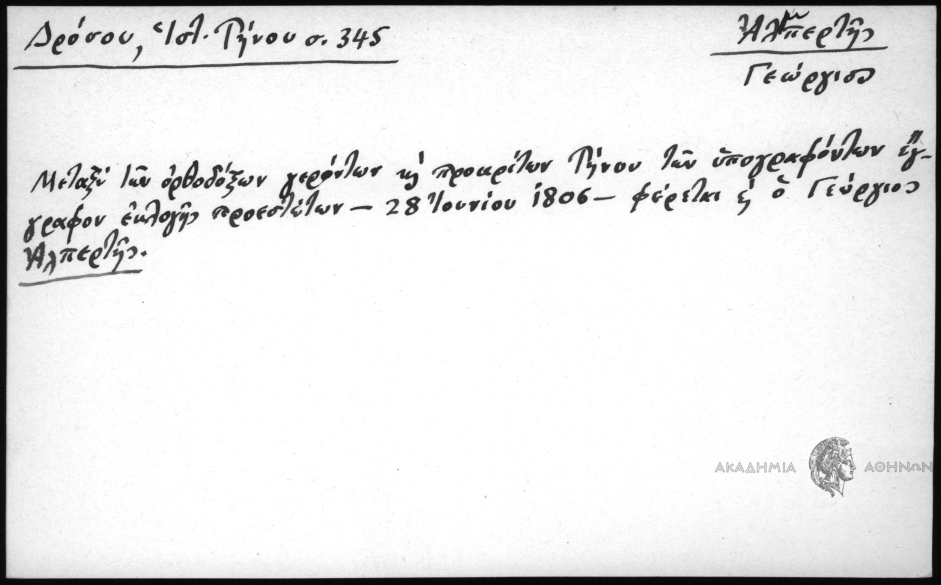 Δρόσου, Ἱστ. Τήνου σ. 345
Ἀλπερτῆς
Γεώργιος
Μεταξὺ τῶν ὀρθοδόξων γερόντων καὶ προκρίτων Τήνου τῶν ὑπογραφόντων ἔγ-
γραφον ἐκλογῆς προεστώτων — 28 Ἰουνίου 1806 — φέρεται καὶ ὁ Γεώργιος
Ἀλπερτῆς.
ΑΚΑΔΗΜΙΑ ΑΘΗΝΩΝ